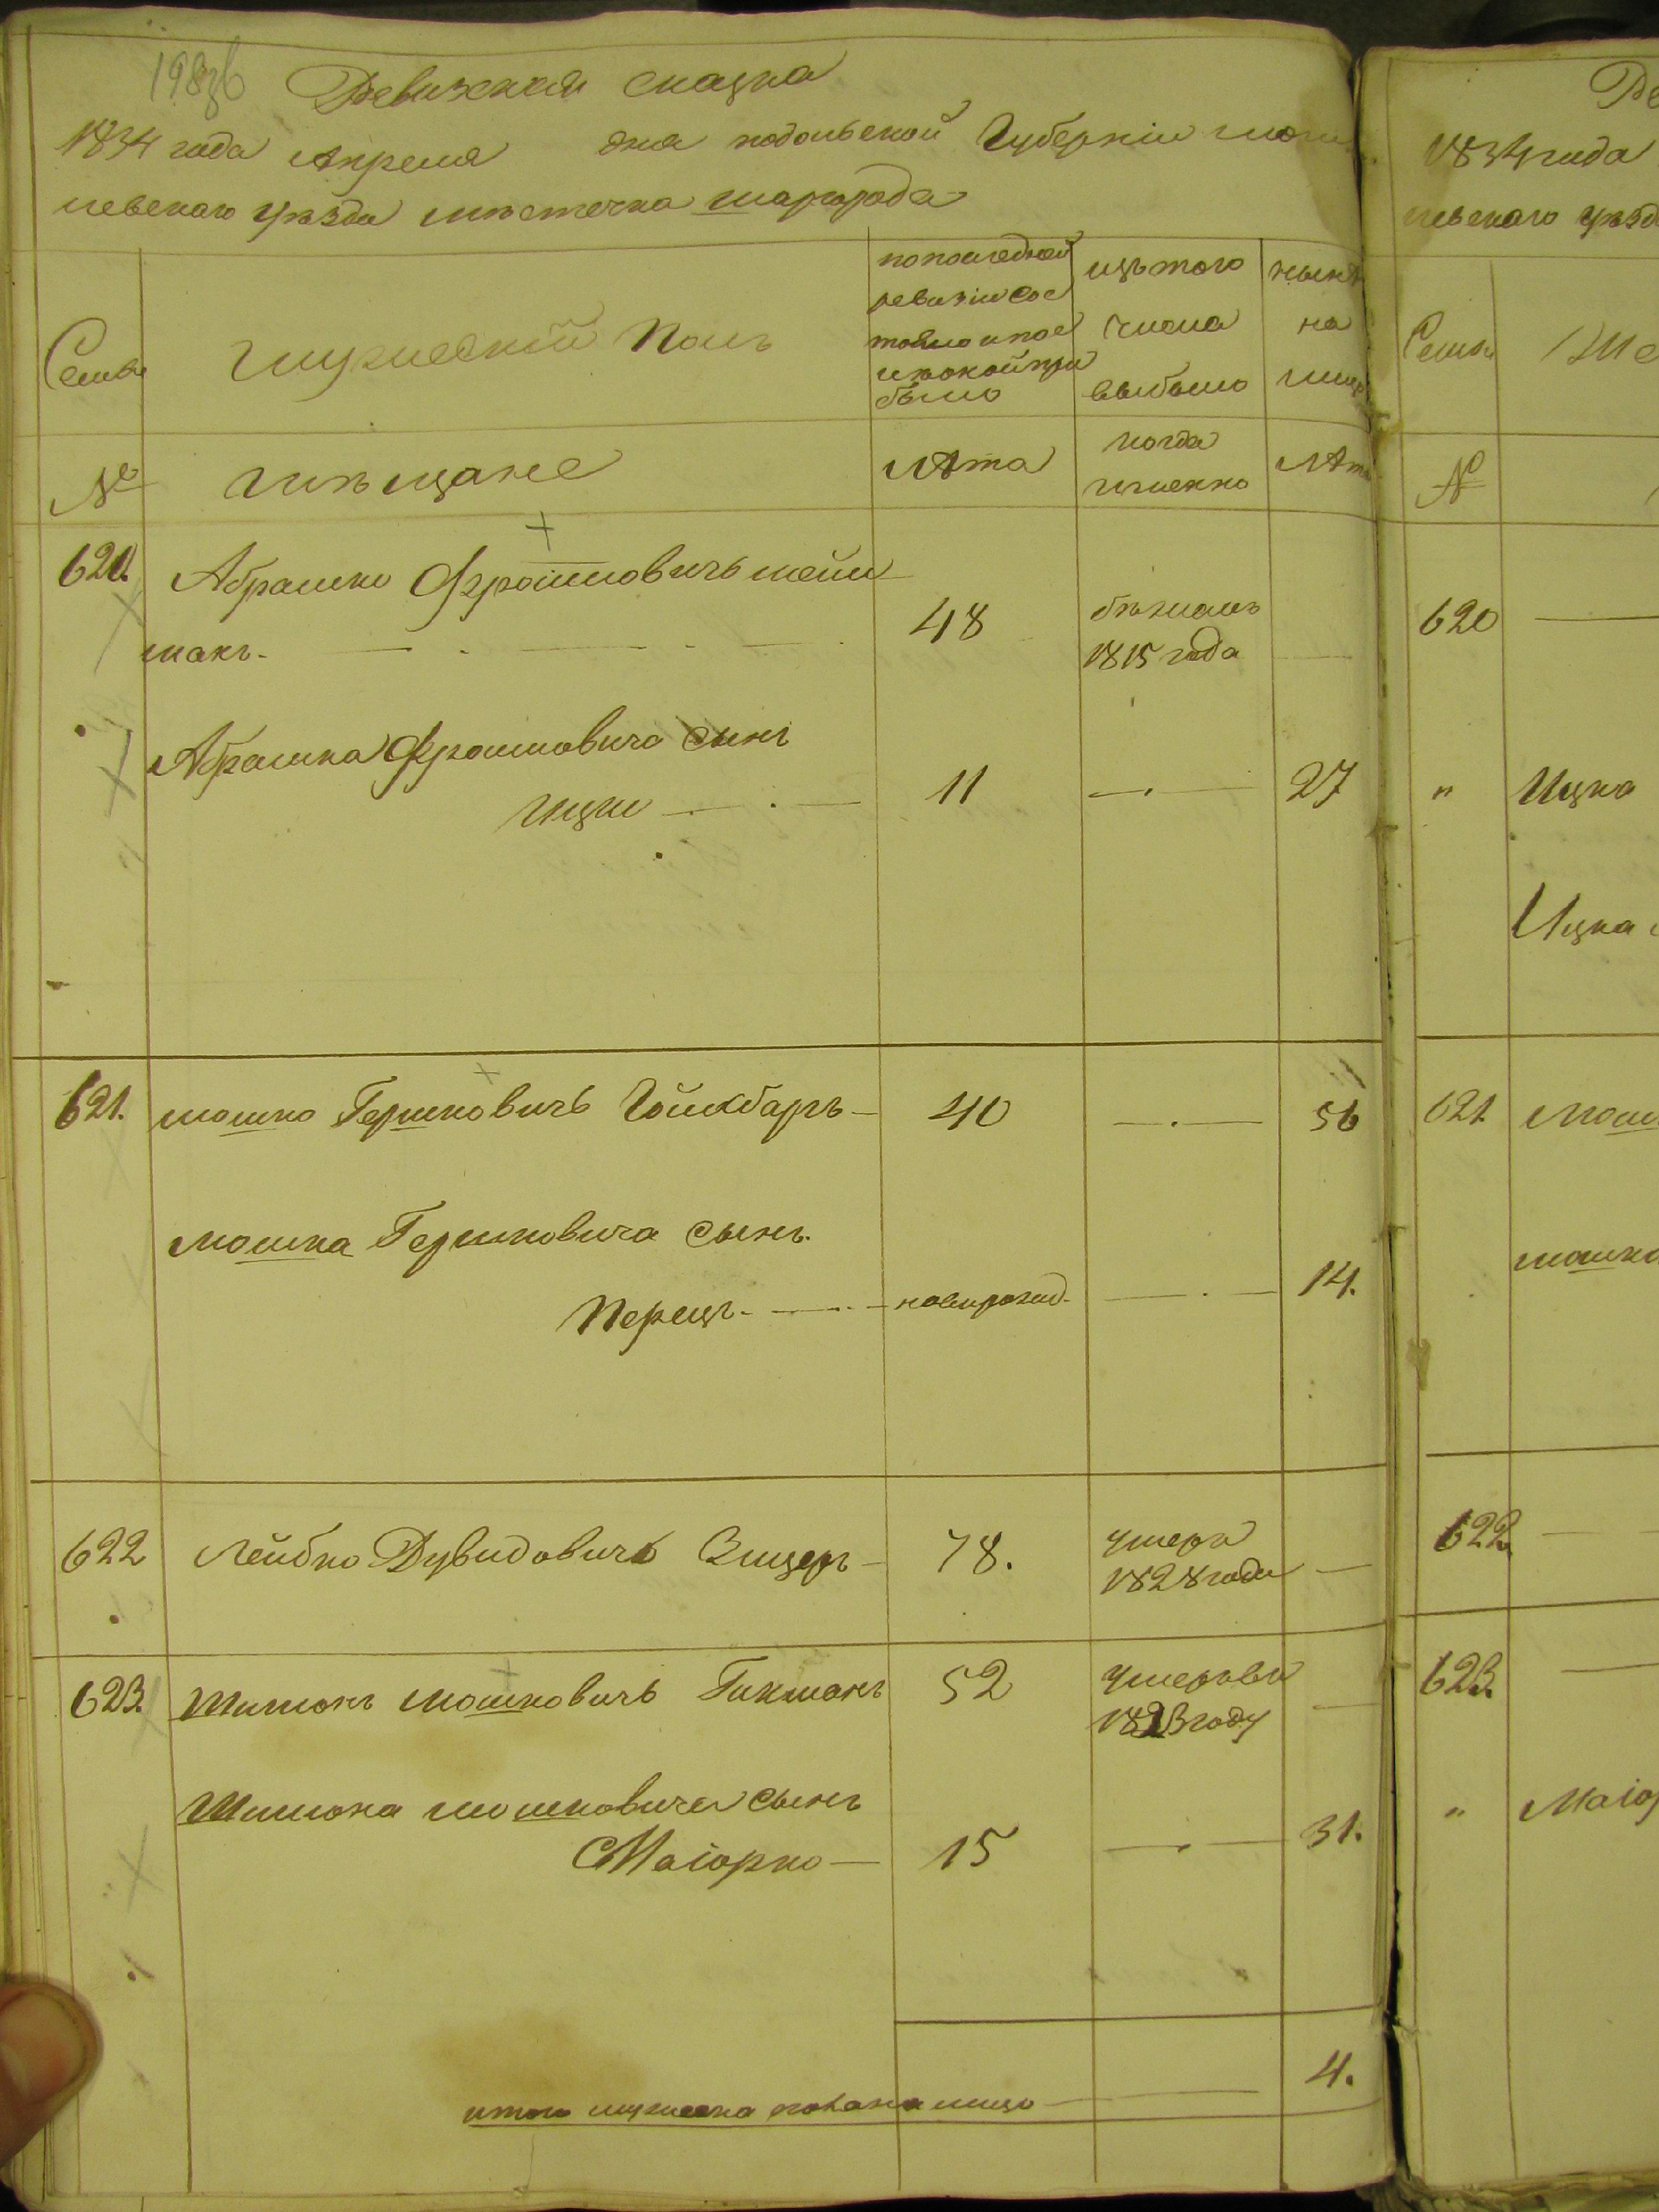 Ревизская сказка
1834 года Апреля дня подольской Губерніи моги
левскаго уѣзда мѣстечка шаргорода
Семьи
Мужескій Полъ
по последней
ревизіи сос
тояло и посл
и покой при
было
изъ того
числа
выбыло
нынѣ
на
лицо
№
мѣщане
Лѣта
когда
именно
Лѣта
620.
Абрашко Фроимовичъ
48
бѣжалъ
1815 года
Абрашка Фроимовича сынъ
Ицко
11
27
621.
мошко Гершковичъ
40
56
мошка Гершковича сынъ.
Перецъ.
новорожд.
14.
622
Лейбко Дувидовичъ
78.
умеръ
1828 года
623.
Шимонъ мошковичъ
52
умеръ въ
1823 году
Шимона мошковича сынъ
Маіорко
15
31.
итого мужеска пола на лицо
4.
1834 года
левскаго уѣзд
Семьи
№
620
"
Ицка
Ицка
621
Мош
мошка
622.
623.
"
Маіор